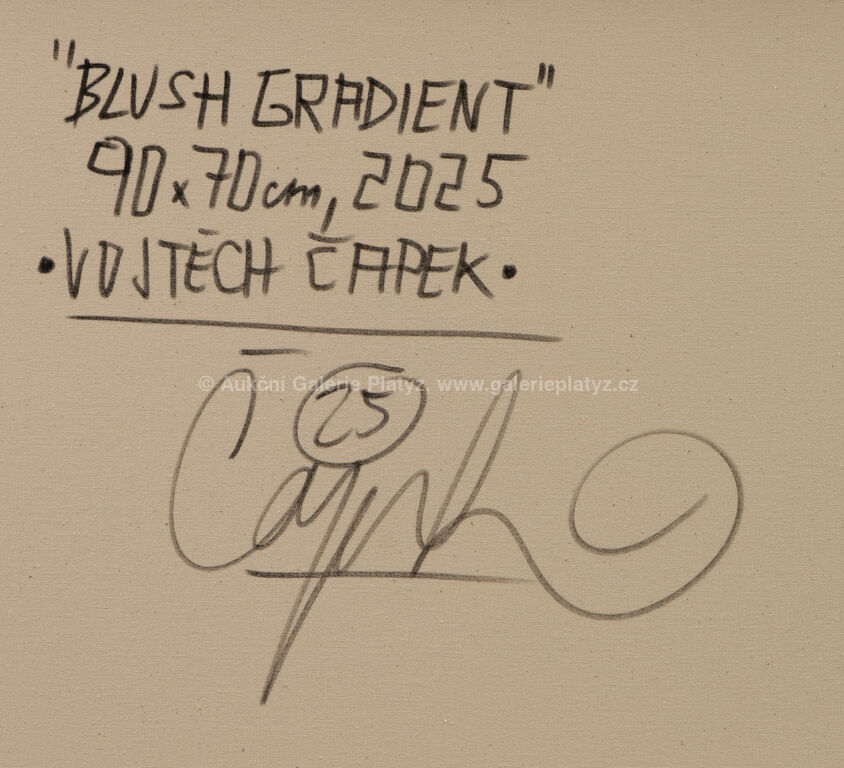 "BLUSH GRADIENT"
90x70cm, 2025
• VOJTĚCH ČAPEK •
© Aukční Galerie Platýz, www.galerieplatyz.cz
25
Čapek